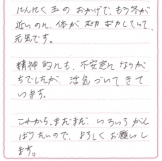 にんにく玉のおかげで、もう冬が
近いのに、体がポカポカしていて、
元気です。
精神的にも、不安定ながら
ちでしたが、活気づいてきて
います。
これから、まだまだ いちょうがん
ばりたいので、よろしくお願いし
ます。